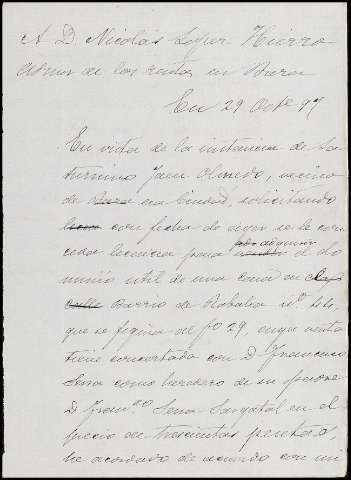 A D. Nicolás López Hierro
Admor de las rentas en Baeza
En 29 Octe 97
En vista de la instancia de Sa-
turnino Jaen Olmedo, vecino
de Baza esa Ciudad, solicitando
con fecha de ayer se le con-
ceda licencia para adquirir el do-
minio util de una casa en
calle Barrio de Rabalia nº 44
que se figina al fº 29, cuya venta
tiene concertada con D Francisco
Sena como heredero de su
D. Franco Sena Sargatal en el
precio de trescientas pesetas,
he acordado de acuerdo con mi